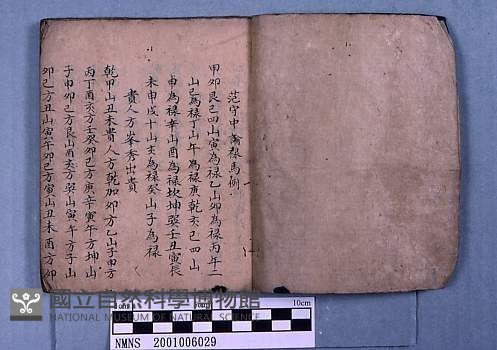 范守中論祿馬例
甲卯艮巳四山寅為祿乙山卯為祿丙午二
山巳為祿丁山午為祿庚乾亥巳四山
申為祿辛山酉為祿坎坤癸壬丑寅長
未申戌十山亥為祿癸山子為祿
貴人方峯秀出貴
乾甲山丑未貴人方乾加卯方乙山子申方
丙丁酉亥方壬癸卯巳方庚辛寅午方坤山
子申卯巳方艮山酉亥方巽山寅午方子山
卯巳方丑山寅午卯巳方寅山丑未酉方卯
國立自然科學博物館
NATIONAL MUSEUM OF NATURAL SCIENCE
10cm
NMNS 2001006029